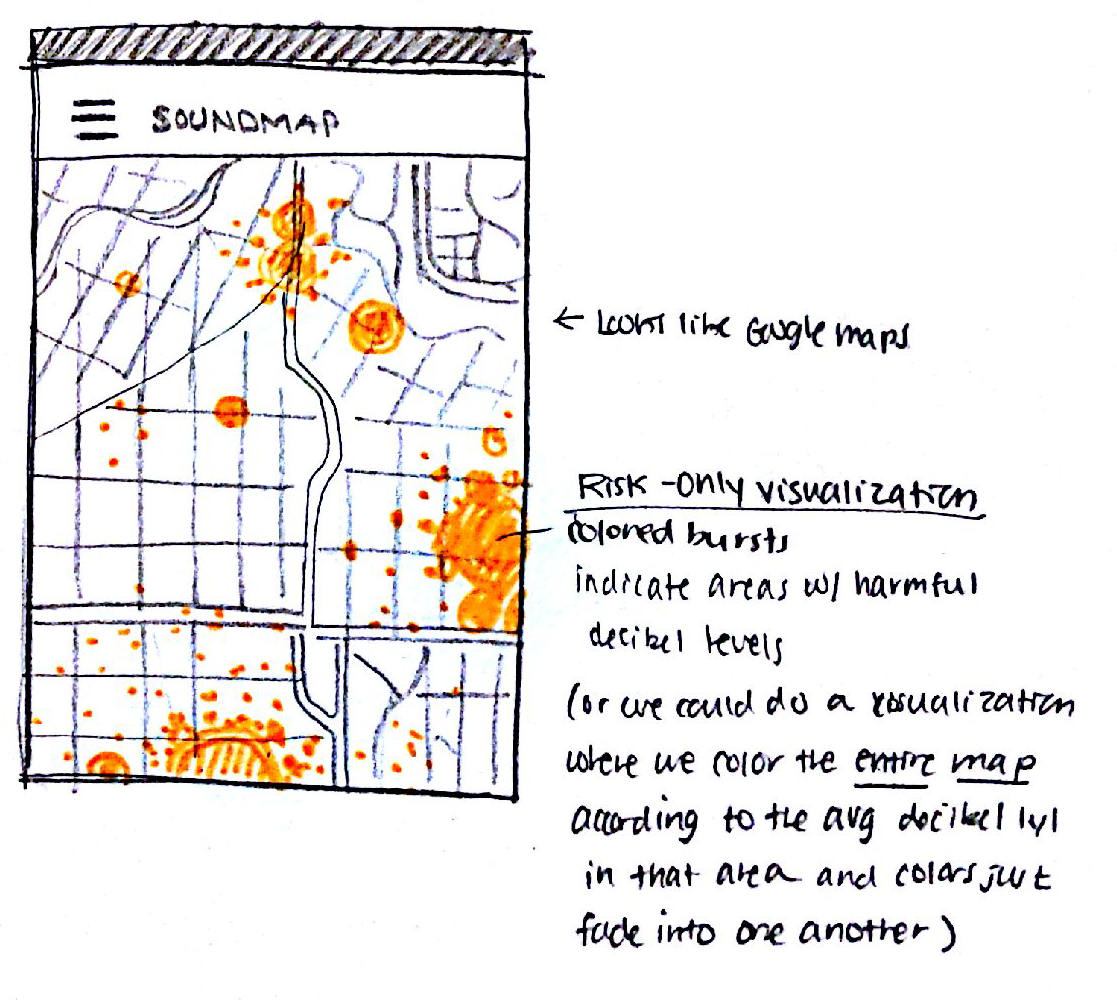 SOUNDMAP
← Looks like Google maps
Risk-Only visualization
colored bursts
indicate areas w/ harmful
decibel levels
(or we could do a visualization
where we color the entire map
according to the avg decibel lvl
in that area and colors just
fade into one another)